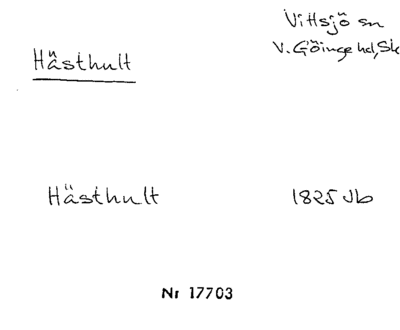 Vittsjö sn
Hästhult
V. Göinge hd, Sk
Hästhult
1825 Jb
Nr 17703